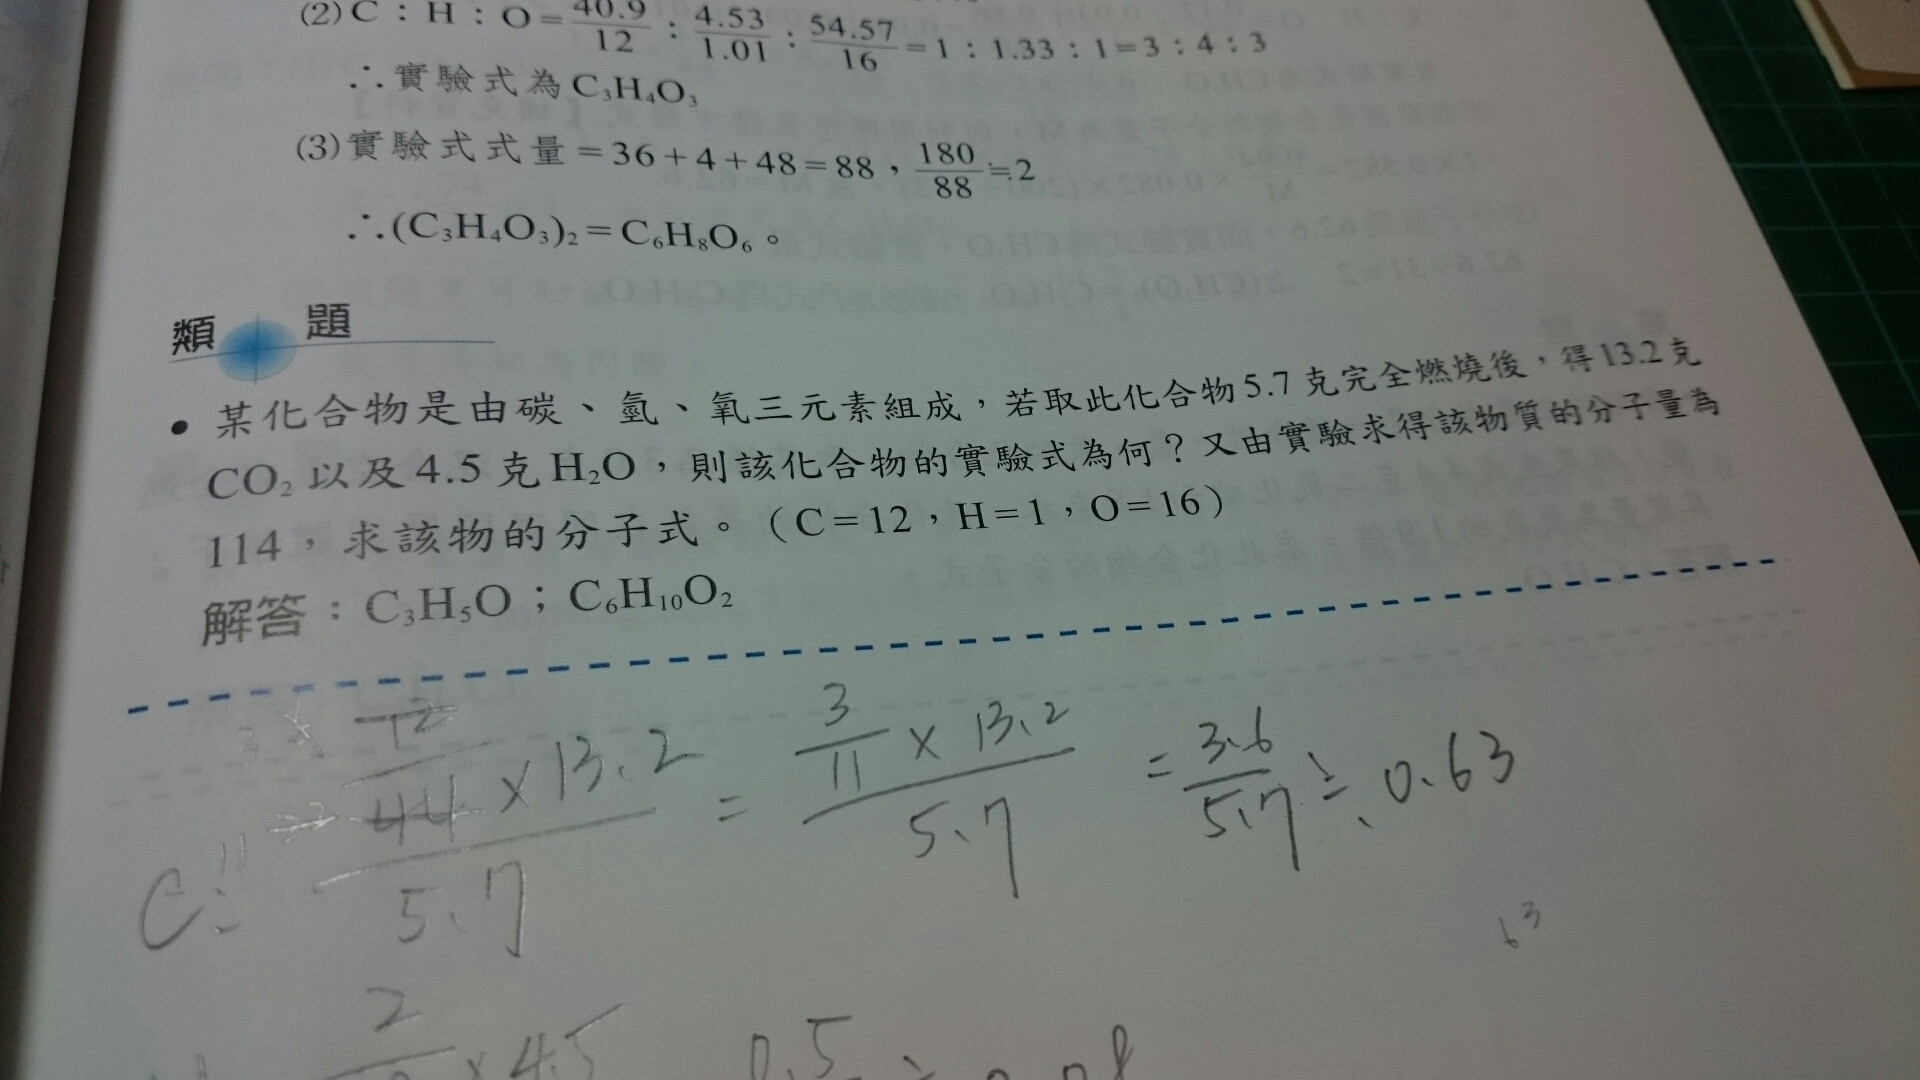 (2) C：H：O＝40.9/12：4.53/1.01：54.57/16＝1：1.33：1＝3：4：3
∴實驗式為C₃H₄O₃
(3)實驗式式量＝36＋4＋48＝88，180/88≒2
∴(C₃H₄O₃)₂＝C₆H₈O₆。
類題
• 某化合物是由碳、氫、氧三元素組成，若取此化合物5.7克完全燃燒後，得13.2克
CO₂以及4.5克H₂O，則該化合物的實驗式為何？又由實驗求得該物質的分子量為
114，求該物的分子式。（C＝12，H＝1，O＝16）
解答：C₃H₅O；C₆H₁₀O₂
C: 12/44 × 13.2 / 5.7 = 3/11 × 13.2 / 5.7 = 3.6/5.7 ≒ 0.63
63
2
× 4.5 0.5